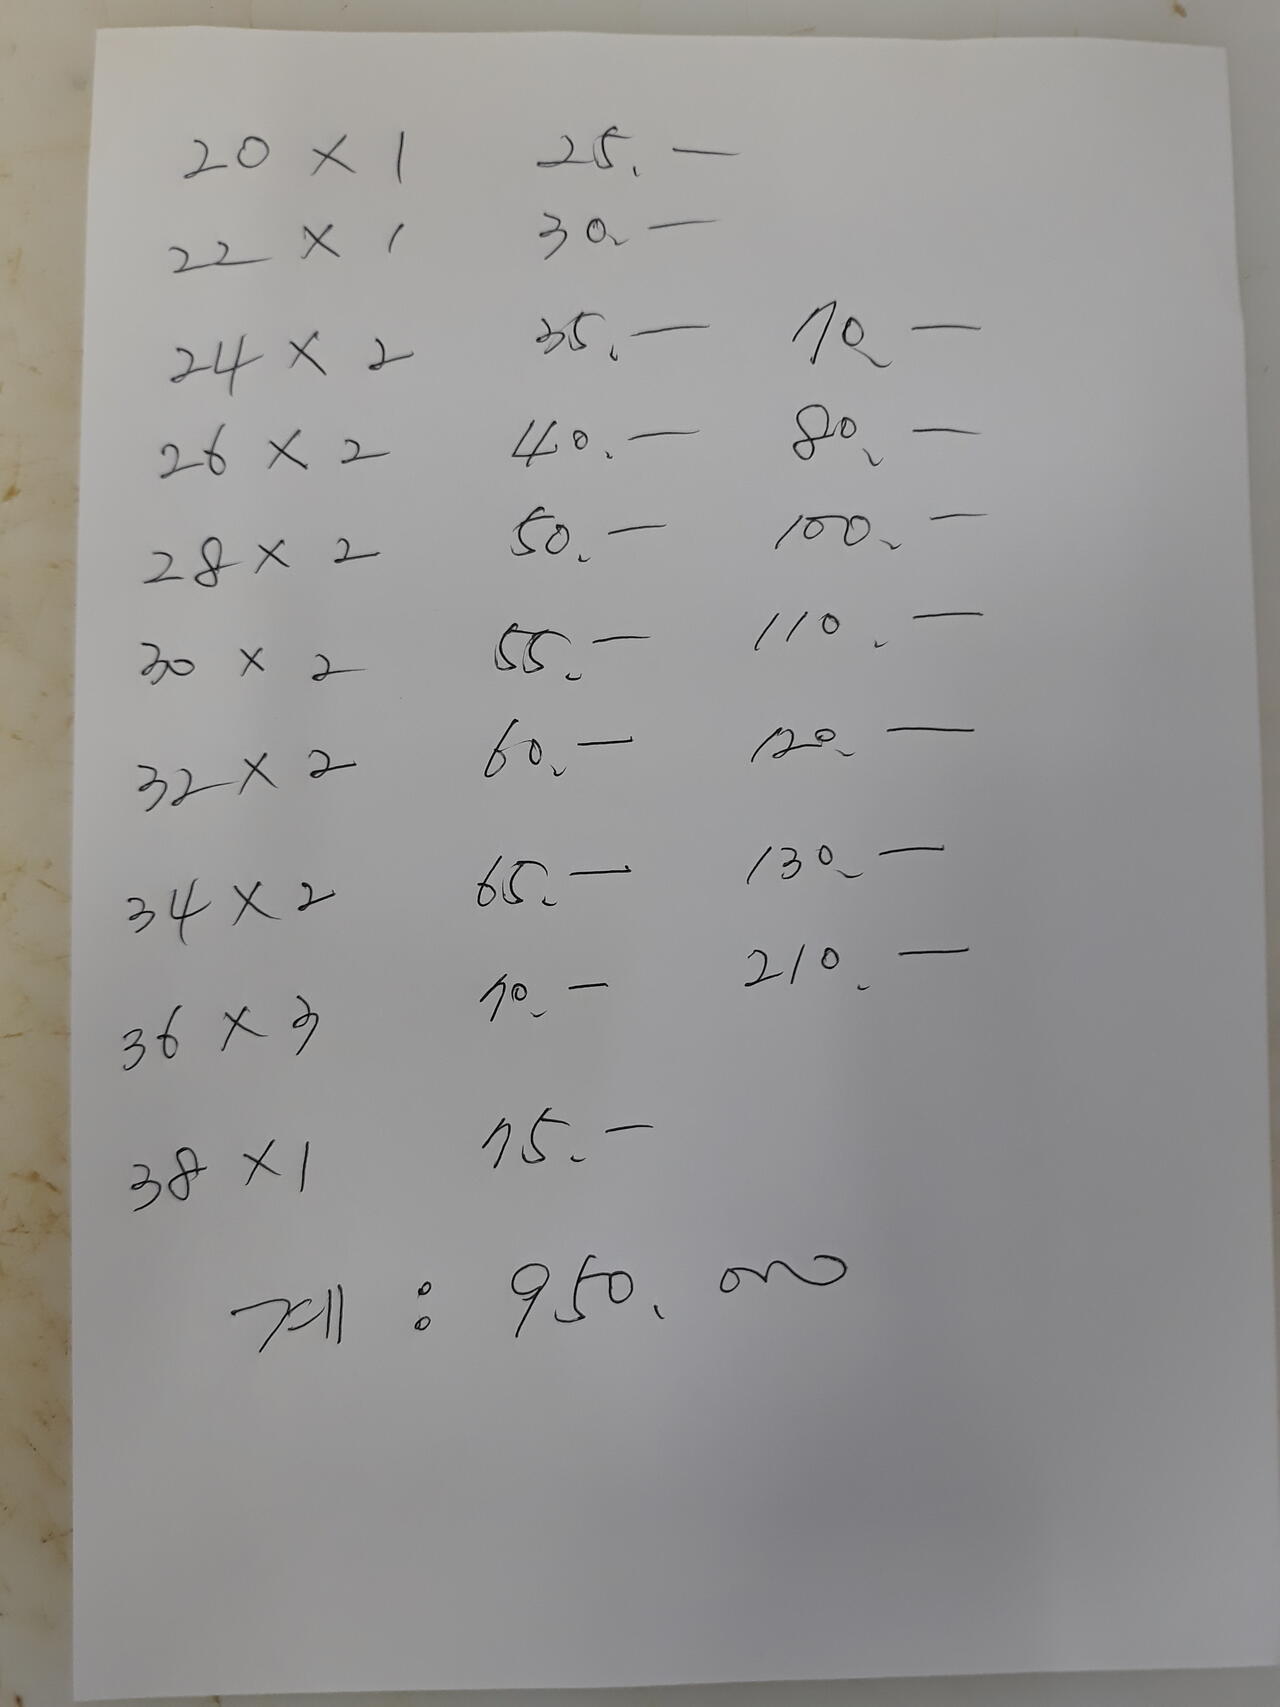 20 × 1 25.—
22 × 1 30.—
24 × 2 35.— 70.—
26 × 2 40.— 80.—
28 × 2 50.— 100.—
30 × 2 55.— 110.—
32 × 2 60.— 120.—
34 × 2 65.— 130.—
36 × 3 70.— 210.—
38 × 1 75.—
계 : 950.000